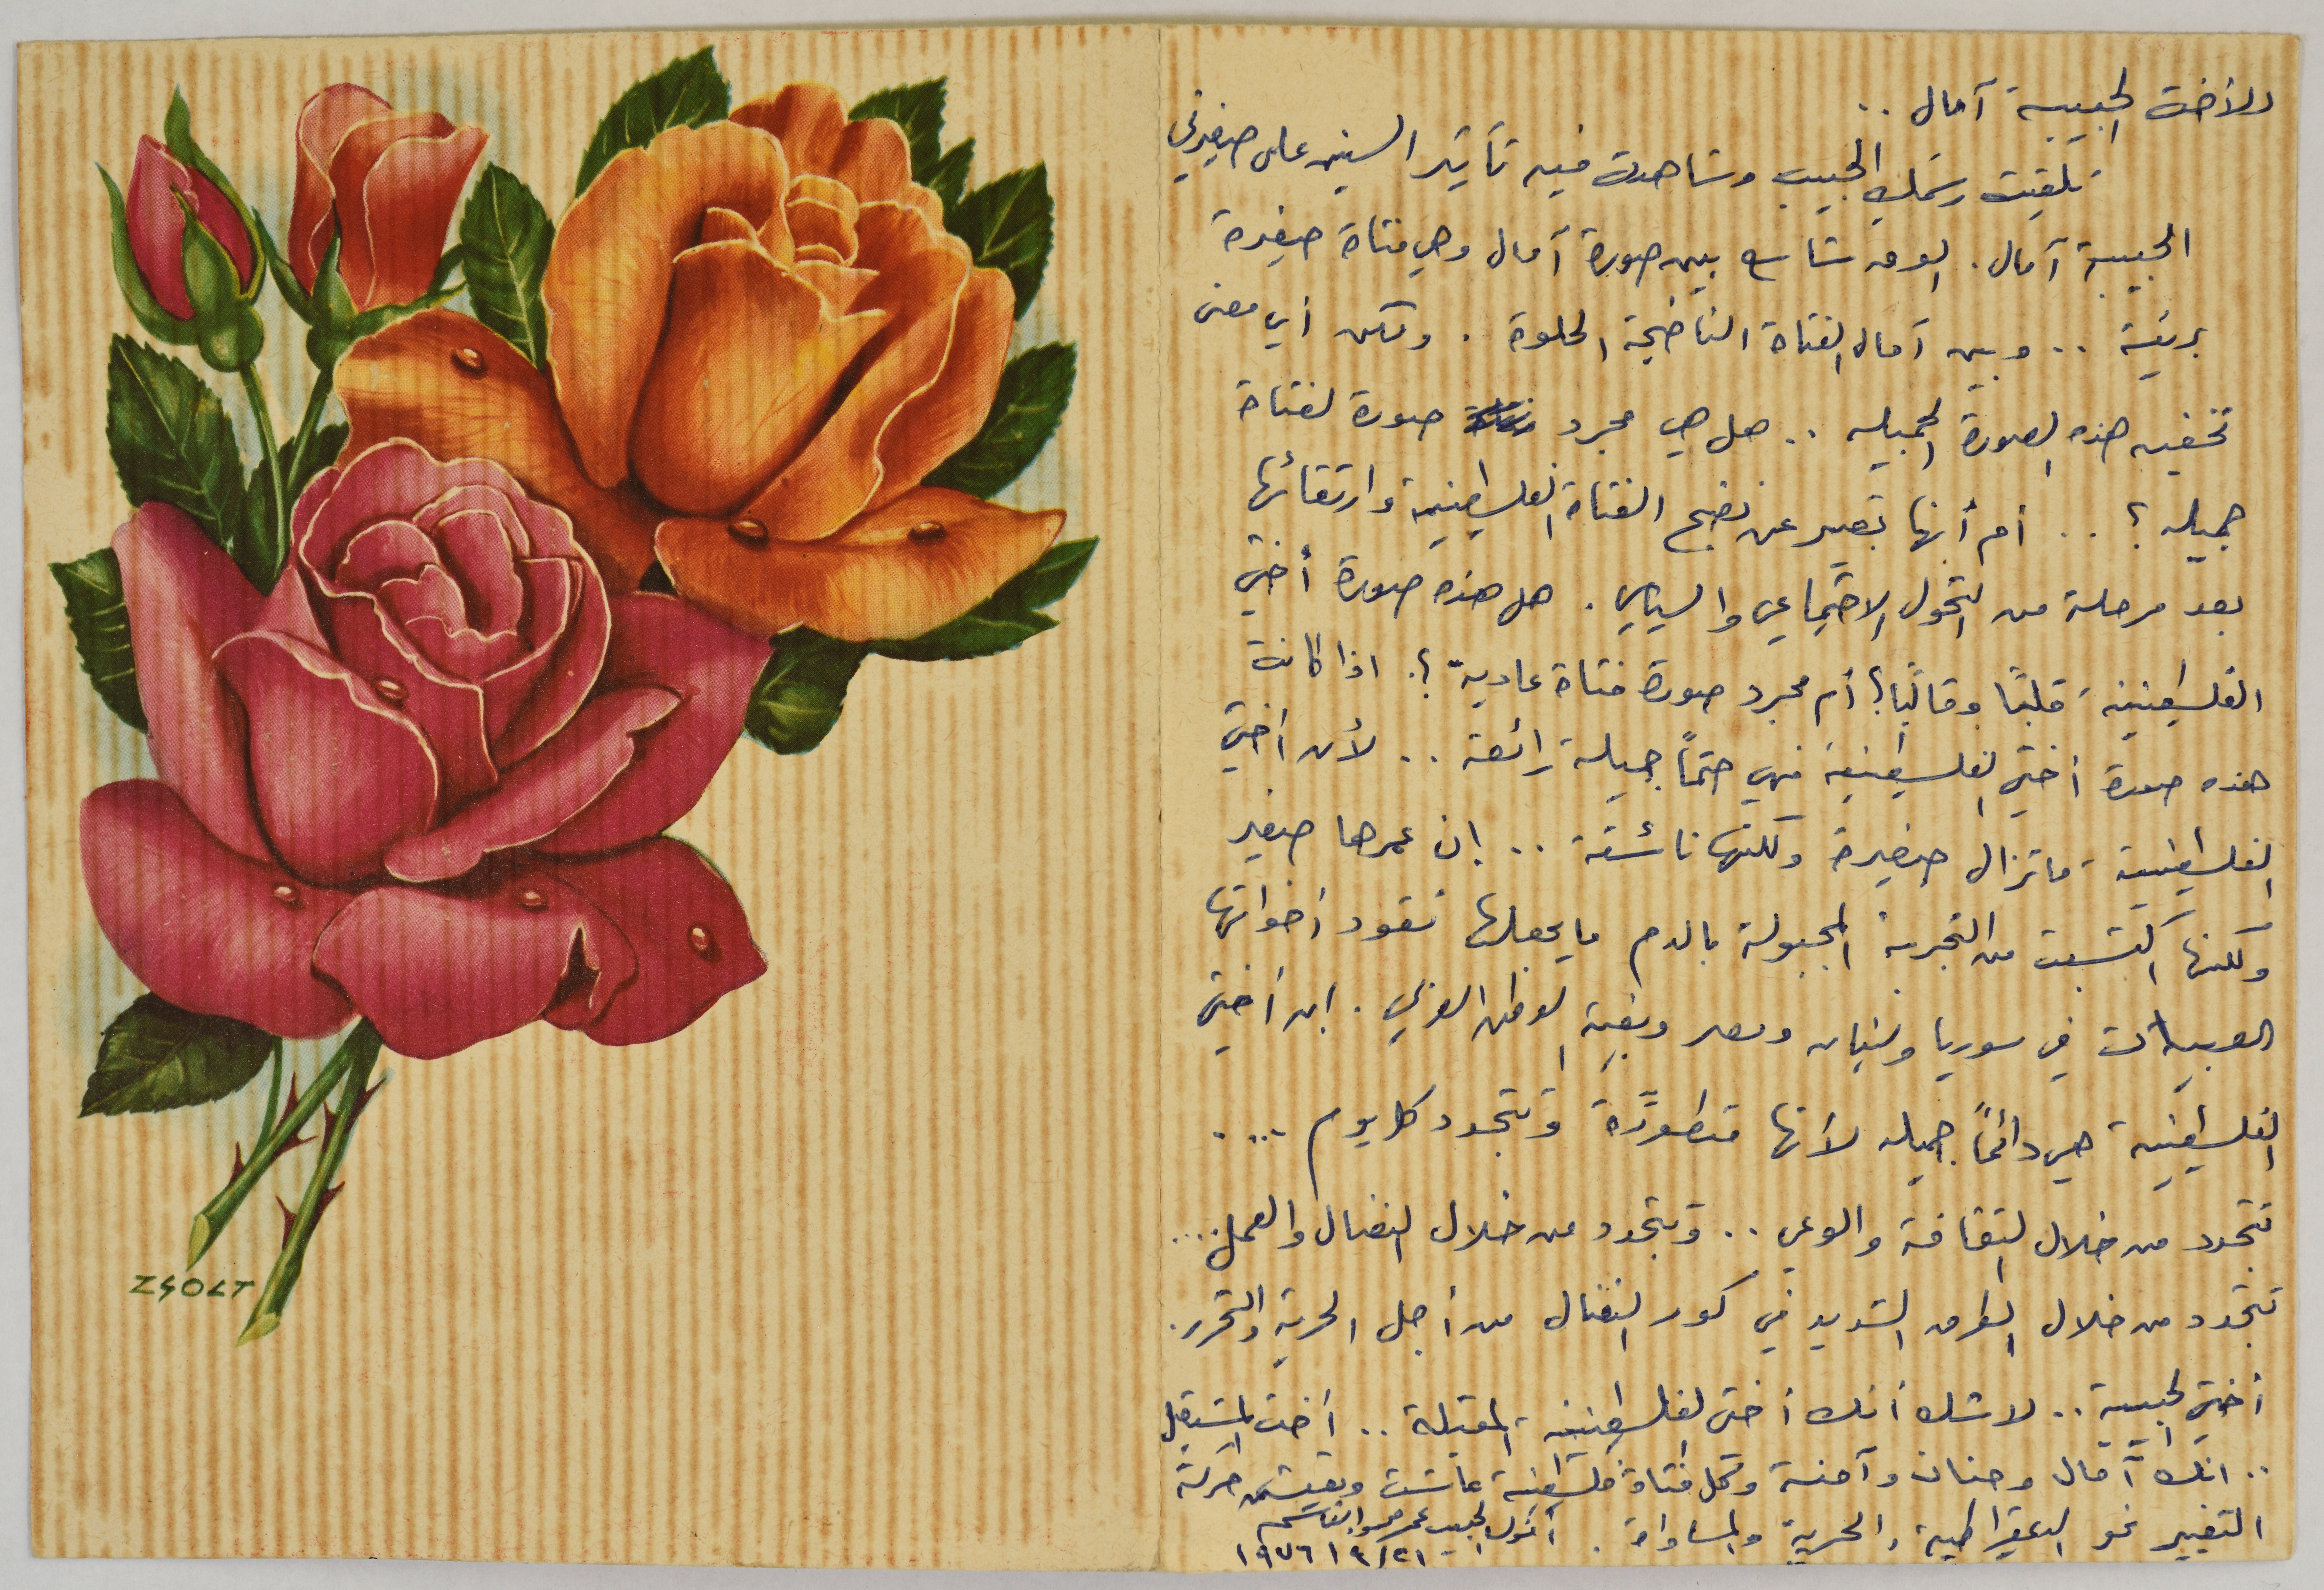 الأخت الحبيبة آمال ..
تلقيت رسمك الحبيب وشاهدة فيه تأثير السنين على صغيرتي
الحبيبة آمال. الفرق شاسع بين صورة آمال وهي فتاة صغيرة
بريئة .. وبين آمال الفتاة الناضجة الحلوة . ولكن أي معنى
تخفيه هذه الصورة الجميله .. هل هي مجرد صورة لفتاة
جميله ؟ .. أم أنها تعبير عن نضج الفتاة الفلسطينية وارتقائها
بعد مرحلة من التحول الاجتماعي والسياسي . هل هذه صورة أختي
الفلسطينية قلبًا وقالبًا؟ أم مجرد صورة فتاة عادية ؟. اذا كانت
هذه صورة أختي الفلسطينية فهي حتمًا جميلة رائعة .. لأن أختي
الفلسطينية ماتزال صغيرة ولكنها ناشئة .. إن عمرها صغير
ولكنها اكتسبت من التجربة المجبولة بالدم مايجعلها تقود أخواتها
العربيات في سوريا ولبنان ومصر وبقية الوطن العربي . إن أختي
الفلسطينية هي دائمًا جميله لأنها متطورّة وتتجدد كل يوم ....
تتجدد من خلال الثقافة والوعي .. وتتجدد من خلال النضال والعمل...
تتجدد من خلال الطرق الشديد في كور النضال من أجل الحرية والتحرر.
أختي الحبيبة .. لا شك أنك أختي الفلسطينية المقبلة .. أخت المستقبل
.. انك آمال وحنان وآمنة وكل فتاة فلسطينية عاشت وتعيش حركة
التغيير نحو الديمقراطية والحرية والمساواة . أخوك الحبيب عمر القاسم
٢١/٩/١٩٧٦
ZSOLT